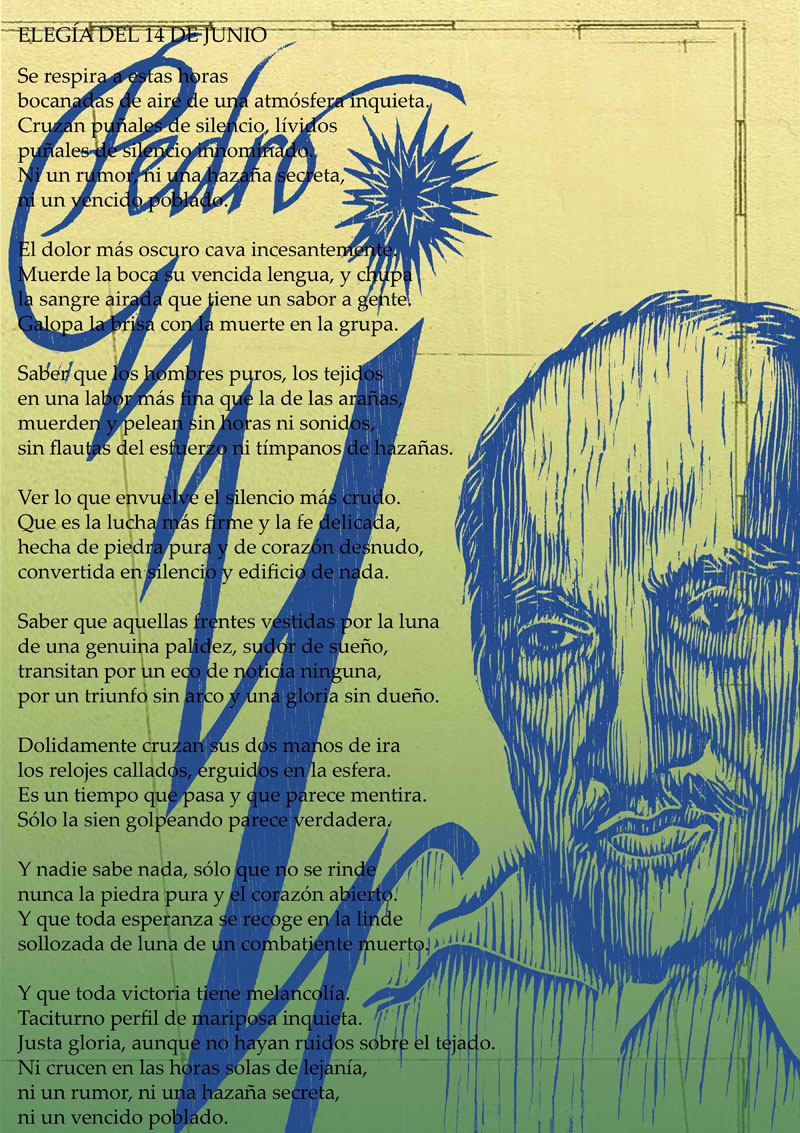 ELEGÍA DEL 14 DE JUNIO
Se respira a estas horas
bocanadas de aire de una atmósfera inquieta.
Cruzan puñales de silencio, lívidos
puñales de silencio innominado.
Ni un rumor, ni una hazaña secreta,
ni un vencido poblado.
El dolor más oscuro cava incesantemente.
Muerde la boca su vencida lengua, y chupa
la sangre airada que tiene un sabor a gente.
Galopa la brisa con la muerte en la grupa.
Saber que los hombres puros, los tejidos
en una labor más fina que la de las arañas,
muerden y pelean sin horas ni sonidos,
sin flautas del esfuerzo ni tímpanos de hazañas.
Ver lo que envuelve el silencio más crudo.
Que es la lucha más firme y la fe delicada,
hecha de piedra pura y de corazón desnudo,
convertida en silencio y edificio de nada.
Saber que aquellas frentes vestidas por la luna
de una genuina palidez, sudor de sueño,
transitan por un eco de noticia ninguna,
por un triunfo sin arco y una gloria sin dueño.
Dolidamente cruzan sus dos manos de ira
los relojes callados, erguidos en la esfera.
Es un tiempo que pasa y que parece mentira.
Sólo la sien golpeando parece verdadera.
Y nadie sabe nada, sólo que no se rinde
nunca la piedra pura y el corazón abierto.
Y que toda esperanza se recoge en la linde
sollozada de luna de un combatiente muerto.
Y que toda victoria tiene melancolía.
Taciturno perfil de mariposa inquieta.
Justa gloria, aunque no hayan ruidos sobre el tejado.
Ni crucen en las horas solas de lejanía,
ni un rumor, ni una hazaña secreta,
ni un vencido poblado.
Pedro
Mir